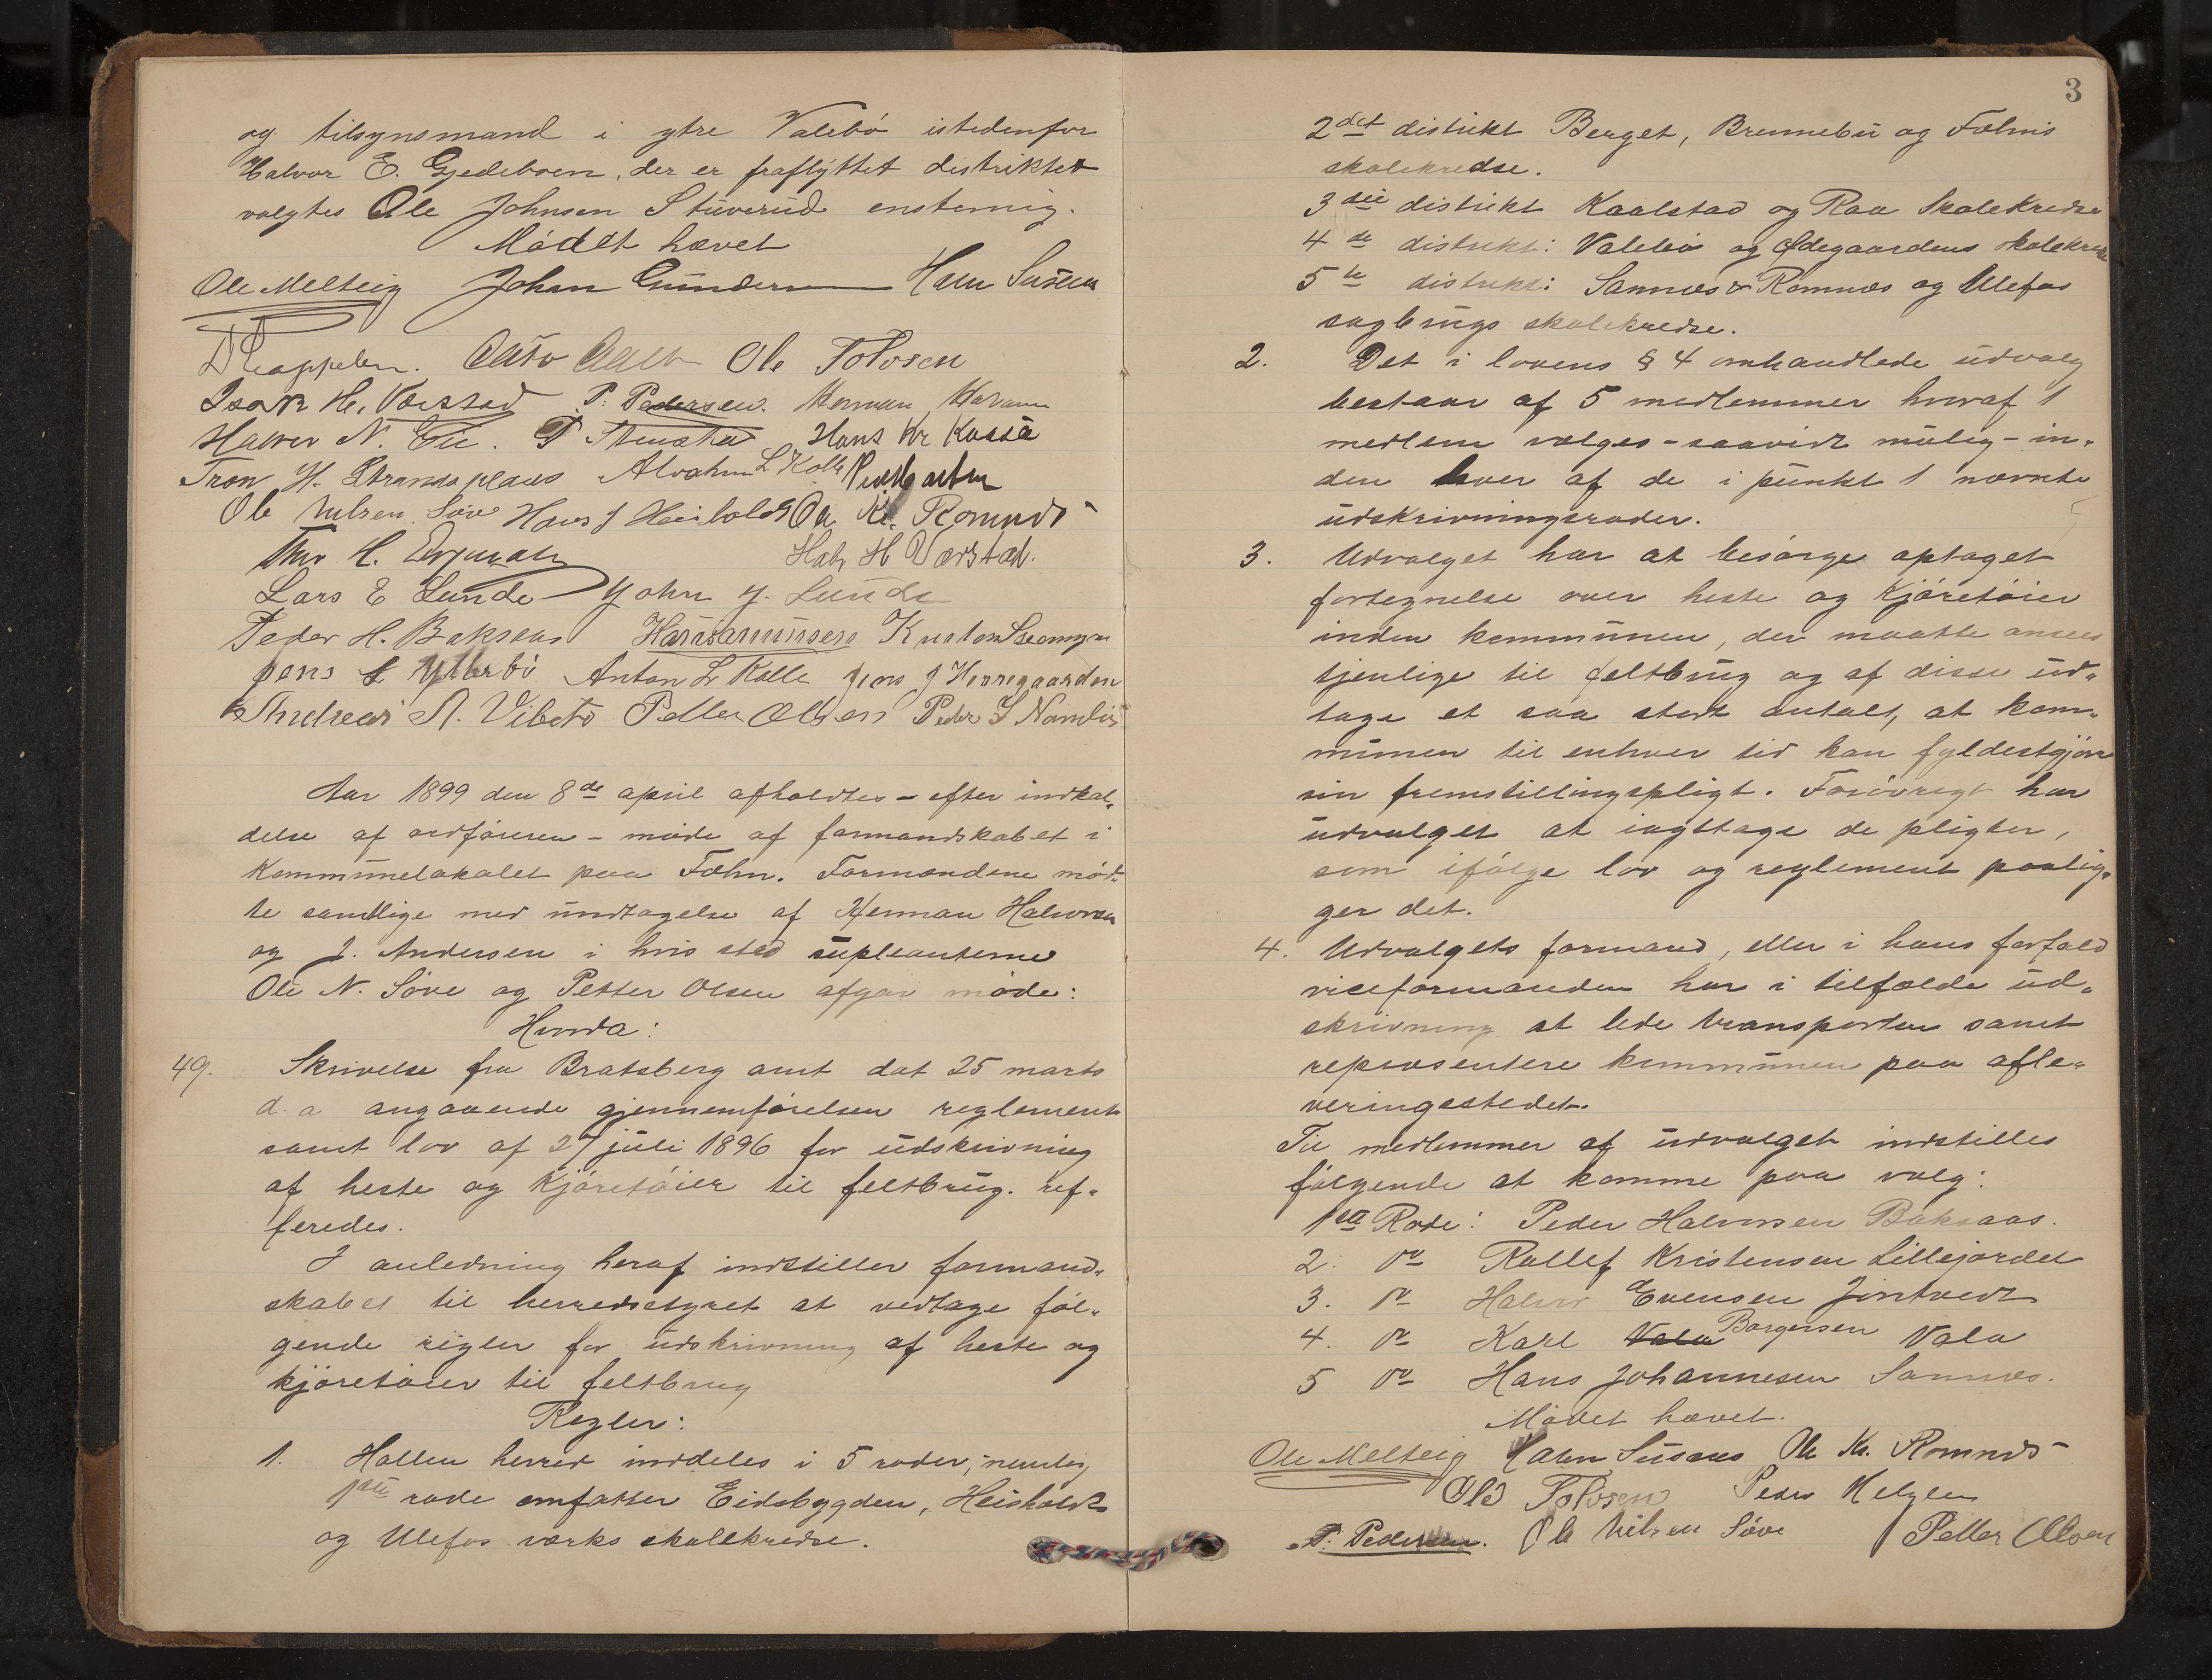 og tilsynsmand i ytre Valebö istedenfor
Halvor E. Gjedeboen, der er fraflyttet distriktet
valgtes Ole Johnsen Stuverud enstemig.
Mödet hævet
Ole Melteig Johan Gundersen
D Cappelen. Ole Tolvsen
Isak H. Værstad P. Pedersen. Herman
Halvor N. Hans Kr
Tron H. Strandaplads L Kolle
Ole Nilsen Söve Hans J Heisholdt Ole Kr. Romnæs
Thor H. Halv H Værstad.
Lars E Lunde John J. Lunde
Peder H. Baksaas
Jens Anton L Kolle Jens J Herregaarden
Andreas A. Vibeto Petter Olsen Peder S Namlös
Aar 1899 den 8de april afholdtes - efter indkal-
delse af ordföreren - möde af formandskabet i
Kommunelokalet paa Fæhn. Formændene möd-
te samtlige med undtagelse af Herman Halvorsen
og J. Andersen i hvis sted supleanterne
Ole N. Söve og Petter Olsen afgav möde:
Hvorda:
49. Skrivelse fra Bratsberg amt dat 25 marts
d. a angaaende gjennemförelsen reglement
samt lov af 27 juli 1896 for udskrivning
af heste og Kjöretöier til feltbrug. ref-
feredes.
I anledning heraf indstiller formand-
skabet til herredsstyret at vedtage föl-
gende regler for udskrivning af heste og
kjöretöier til feltbrug
Regler:
1. Hollen herred inddeles i 5 roder, nemlig
1ste rode omfatter Eidsbygden, Heisholdt
og Ulefos værks skolekredse.
3
2det distrikt Berget, Brennebu og Fæhns
skolekredse.
3die distrikt Kaalstad og Raa Skolekredse
4de distrikt: Valebö og Ödegaardens skolekredse
5te distrikt: Sannæs & Romnæs og Ulefos
sagbrugs skolekredse.
2. Det i lovens § 4 omhandlede udvalg
bestaar af 5 medlemmer hvoraf 1
medlem vælges - saavidt mulig - in-
den hver af de i punkt 1 nævnte
udskrivningsroder.
3. Udvalget har at besörge optaget
fortegnelse over heste og Kjöretöier
inden kommunen, der maatte ansees
tjenlige til feltbrug og af disse ud-
tage et saa stort antal, at kom-
munen til enhver tid kan fyldestgjöre
sin fremstillingspligt. Forövrigt har
udvalget at iagttage de pligter,
som ifölge lov og reglement paalig-
ger det.
4. Udvalgets formand, eller i hans forfald
viceformanden har i tilfælde ud-
skrivning at lede transporten samt
repræsentere kommunen paa afle-
veringsstedet.
Til medlemmer af udvalget indstilles
fölgende at komme paa valg:
1ste Rode: Peder Halvorsen Baksaas.
2. do Rollef Kristensen Lillejordet
3. do Halvor Evensen Jöntvedt
4. do Karl Vala Borgersen Vala
5 do Hans Johannesen Sannæs.
Mödet hævet.
Ole Melteig Ole Kr. Romnæs
Ole Tolvsen Peder Helgen
P. Pedersen. Ole Nilsen Söve Petter Olsen